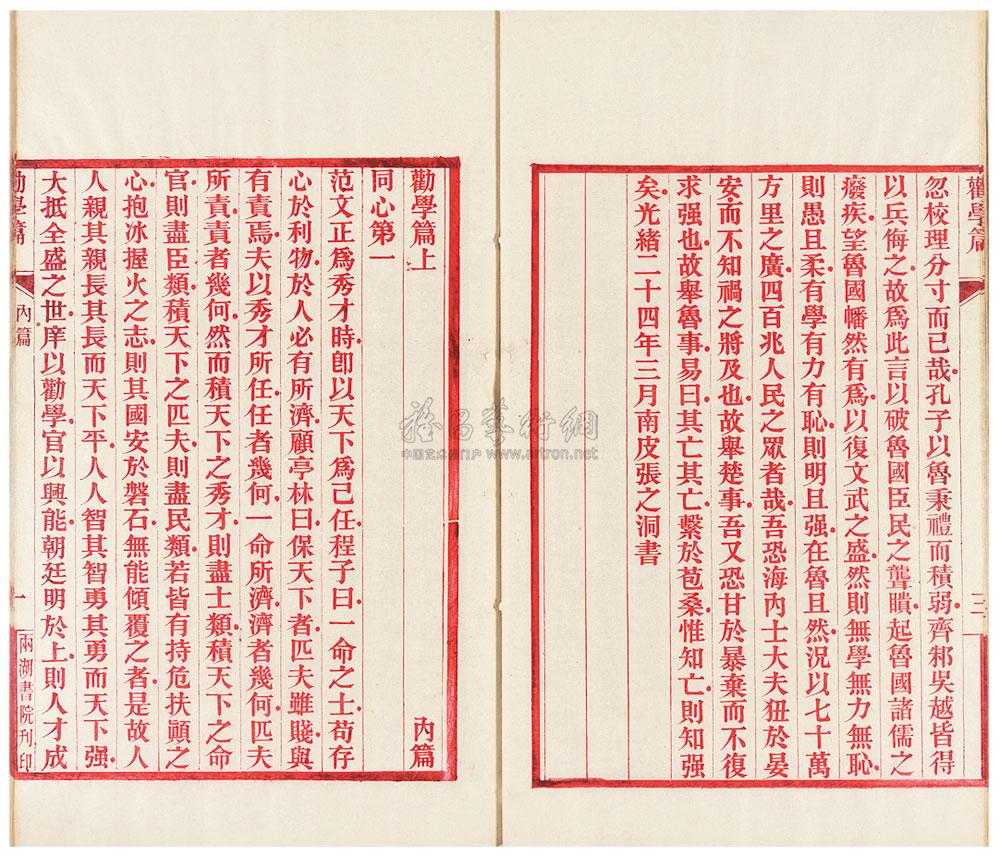 勸學篇
三
忽校理分寸而已哉孔子以魯秉禮而積弱齊邾吳越皆得
以兵侮之故爲此言以破魯國臣民之聾聵起魯國諸儒之
癈疾望魯國幡然有爲以復文武之盛然則無學無力無恥
則愚且柔有學有力有恥則明且强在魯且然況以七十萬
方里之廣四百兆人民之眾者哉吾恐海內士大夫狃於晏
安而不知禍之將及也故舉楚事吾又恐甘於暴棄而不復
求强也故舉魯事易曰其亡其亡繫於苞桑惟知亡則知强
矣光緒二十四年三月南皮張之洞書
勸學篇上
內篇
同心第一
范文正爲秀才時卽以天下爲己任程子曰一命之士苟存
心於利物於人必有所濟顧亭林曰保天下者匹夫雖賤與
有責焉夫以秀才所任任者幾何一命所濟濟者幾何匹夫
所責責者幾何然而積天下之秀才則盡士類積天下之命
官則盡臣類積天下之匹夫則盡民類若皆有持危扶顚之
心抱冰握火之志則其國安於磐石無能傾覆之者是故人
人親其親長其長而天下平人人智其智勇其勇而天下强
大抵全盛之世庠以勸學官以興能朝廷明於上則人才成
勸學篇
內篇
一
兩湖書院刊印
雅昌藝術網
中国艺术品门户 www.artron.net